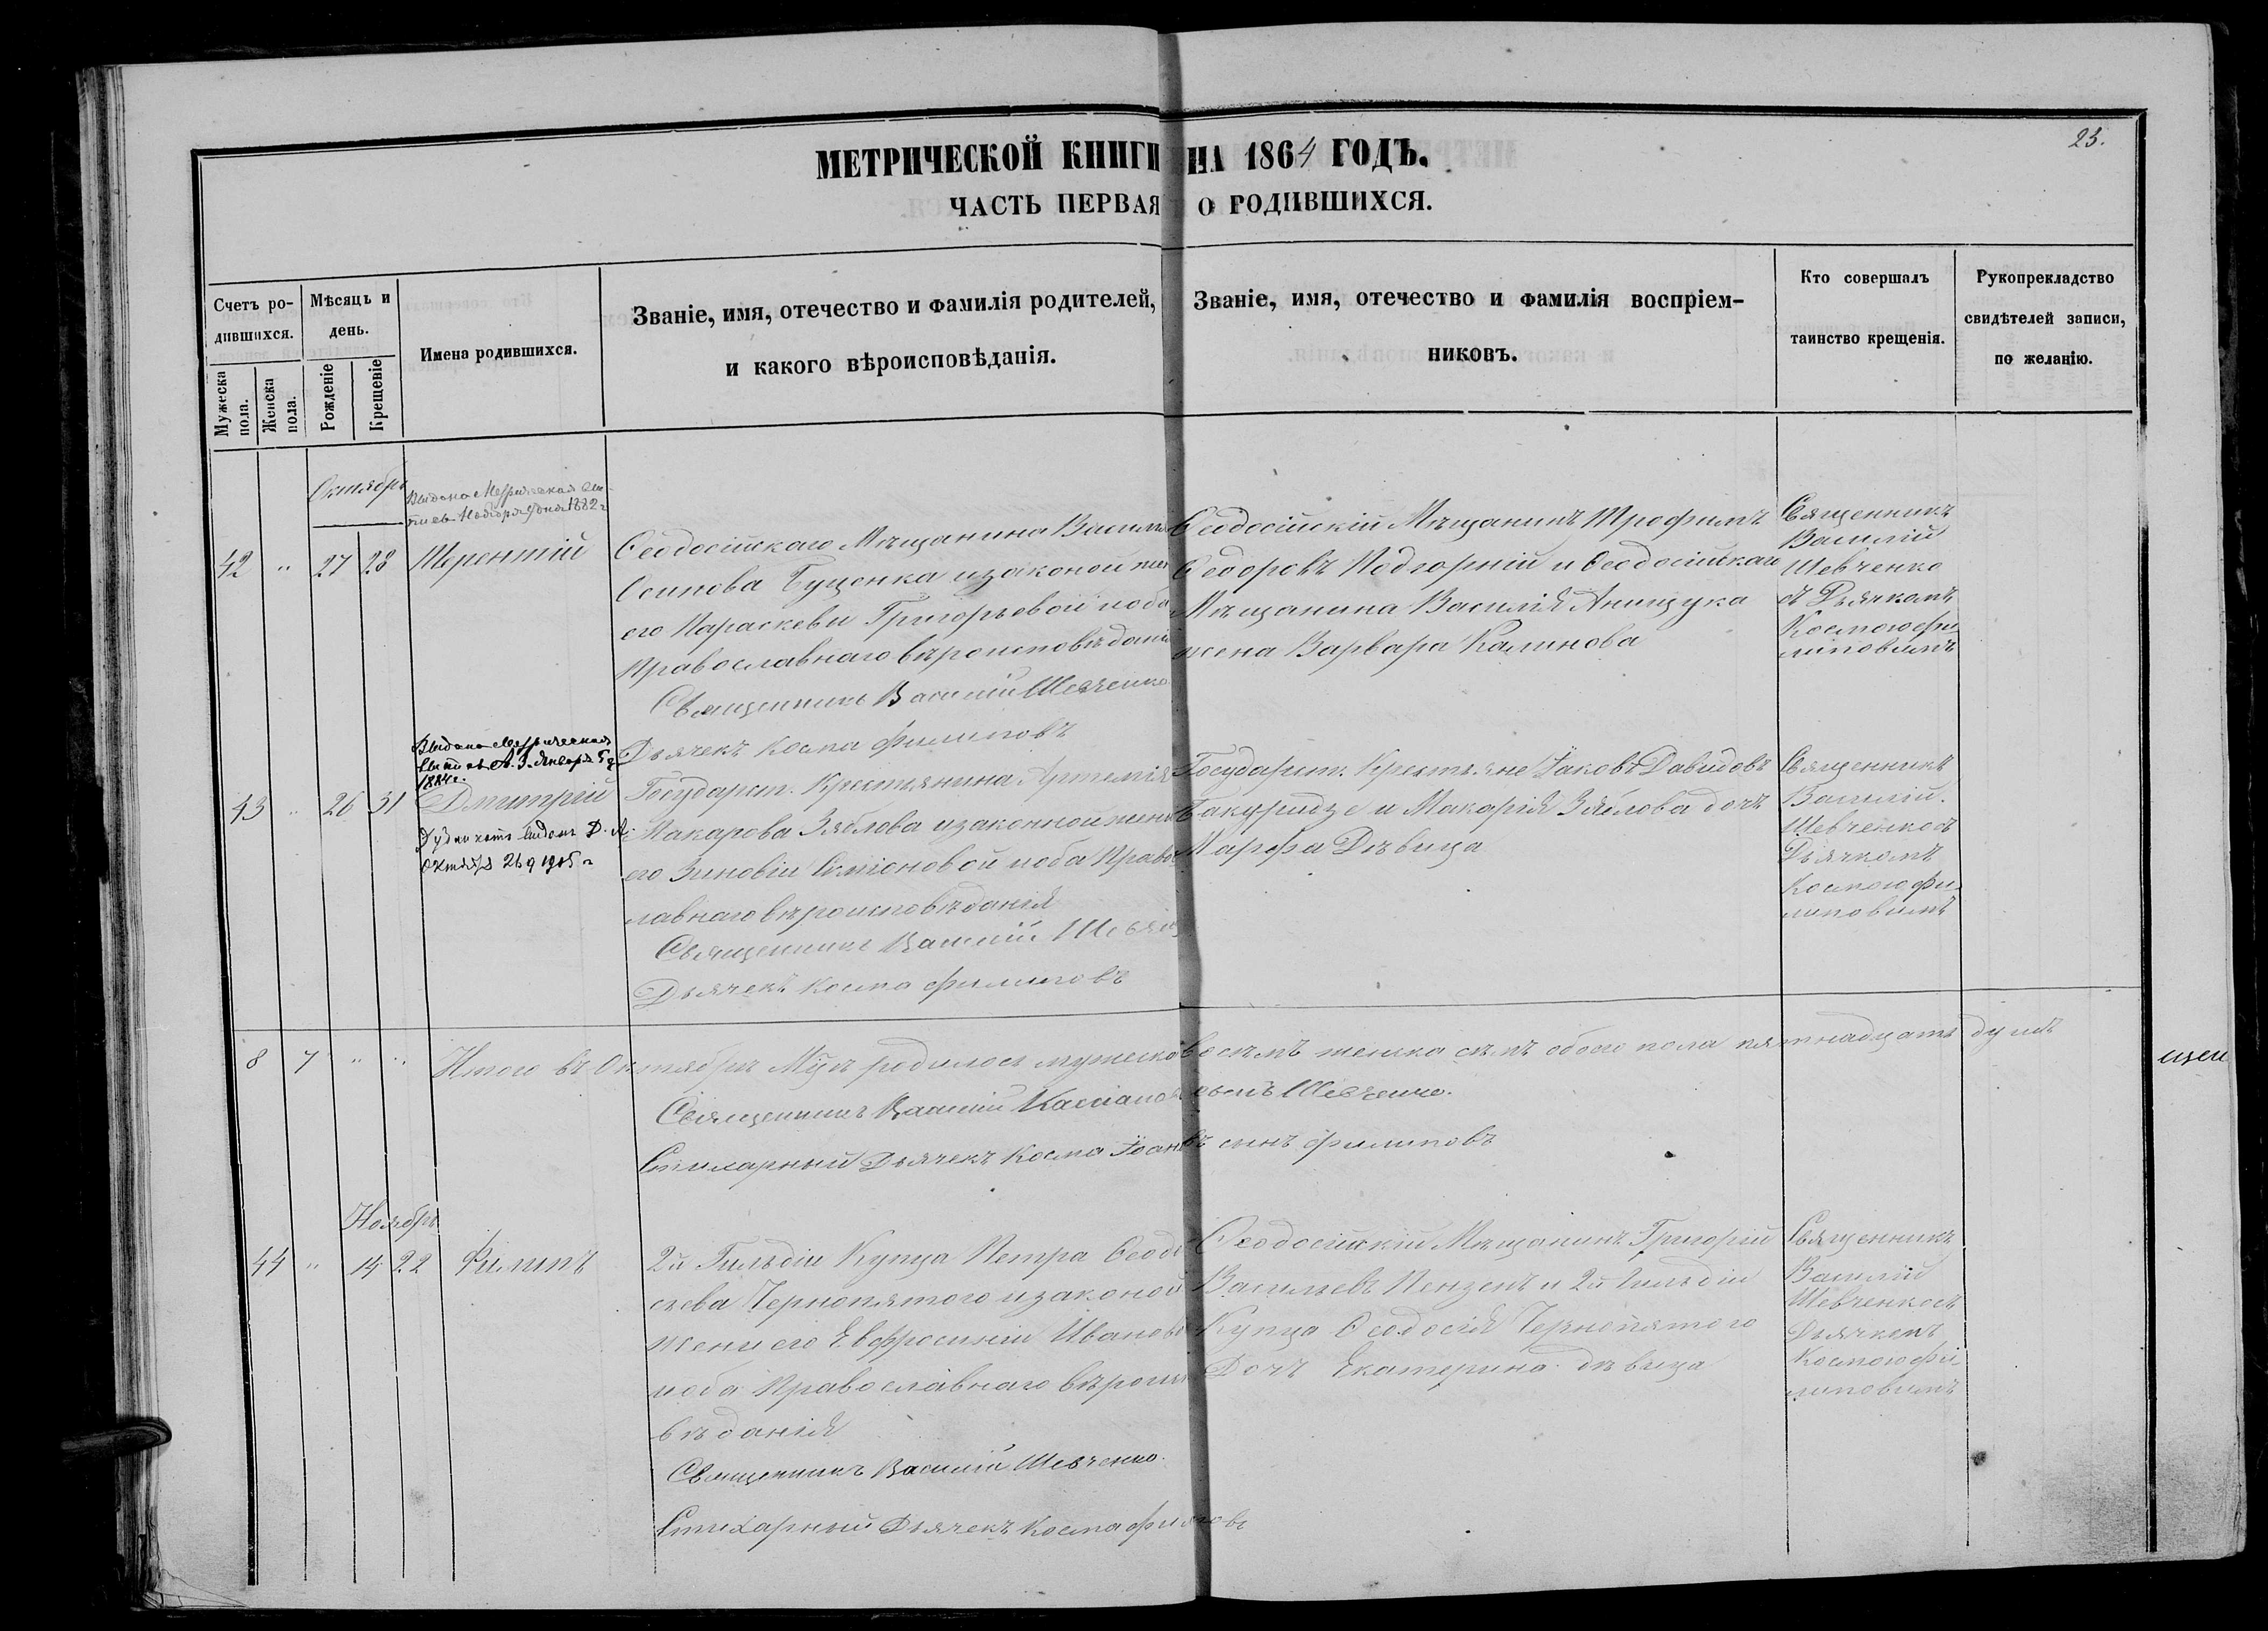 МЕТРИЧЕСКОЙ КНИГИ НА 1864 ГОДЪ.
23.
ЧАСТЬ ПЕРВАЯ О РОДИВШИХСЯ.
Счетъ ро-
дившихся.
Мужеска
пола.
Женска
пола.
Мѣсяць и
день.
Рожденіе
Крещеніе
Имена родившихся.
Званіе, имя, отечество и фамилія родителей,
и какого вѣроисповѣданія.
Званіе, имя, отечество и фамилія воспріем-
никовъ.
Кто совершалъ
таинство крещенія.
Рукопрекладство
свидѣтелей записи,
по желанію.
Октябрь
Выдана Метрическая
1882 г
42 " 27 28 Терентій
Ѳеодосійскаго Мѣщанина Василія
Осипова Буценка и законой жены
его Параскевы Григорьевой оба
Православнаго вѣроисповѣданія
Священникъ Василій Шевченко
Дьячекъ Косма Филиповъ
Ѳеодосійскій Мѣщанинъ Трофимъ
Ѳедоровъ Подгорній и Ѳеодосійскаго
Мѣщанина Василія Анищука
жена Варвара Калинова
Священникъ
Василій
Шевченко
съ Дьячкомъ
Космою Фи
липовымъ
Выдана Метрическая
1884 г.
43 " 26 31 Дмитрій
Октября 26 д 1905 г
Государст. Крестьянина Артемія
Макарова Зяблова и законной жены
его Зиновіи Симіоновой оба Правос
лавнаго вѣроисповѣданія
Священникъ Василій Шевченко
Дьячекъ Косма Филиповъ
Государст. Крестьяне Іаковъ Давидовъ
и Макарія Зяблова дочь
Марфа Дѣвица
Священникъ
Василій
Шевченко съ
Дьячкомъ
Космою Фи
липовымъ
8 7 " " Итого въ Октябрѣ М-цѣ родилось мужеска восемъ женска семъ обоего пола пятнадцать душъ
Священникъ Василій Касіановъ сынъ Шевченко.
Стихарный Дьячекъ Косма Іоановъ сынъ Филиповъ
щен
Ноябрь
44 " 14 22 Филипъ
2й Гильдіи Купца Петра Ѳеодо
сьева Чернопятого и законой
жены его Евфросиніи Ивановой
оба Православнаго вѣроиспо
вѣданія
Священникъ Василій Шевченко.
Стихарный Дьячекъ Косма Филиповъ
Ѳеодосійскій Мѣщанинъ Григорій
Васильевъ Пензенъ и 2й Гильдіи
Купца Ѳеодосія Чернопятого
Дочъ Екатерина дѣвица
Священникъ
Василій
Шевченко съ
Дьячкомъ
Космою Фи
липовымъ